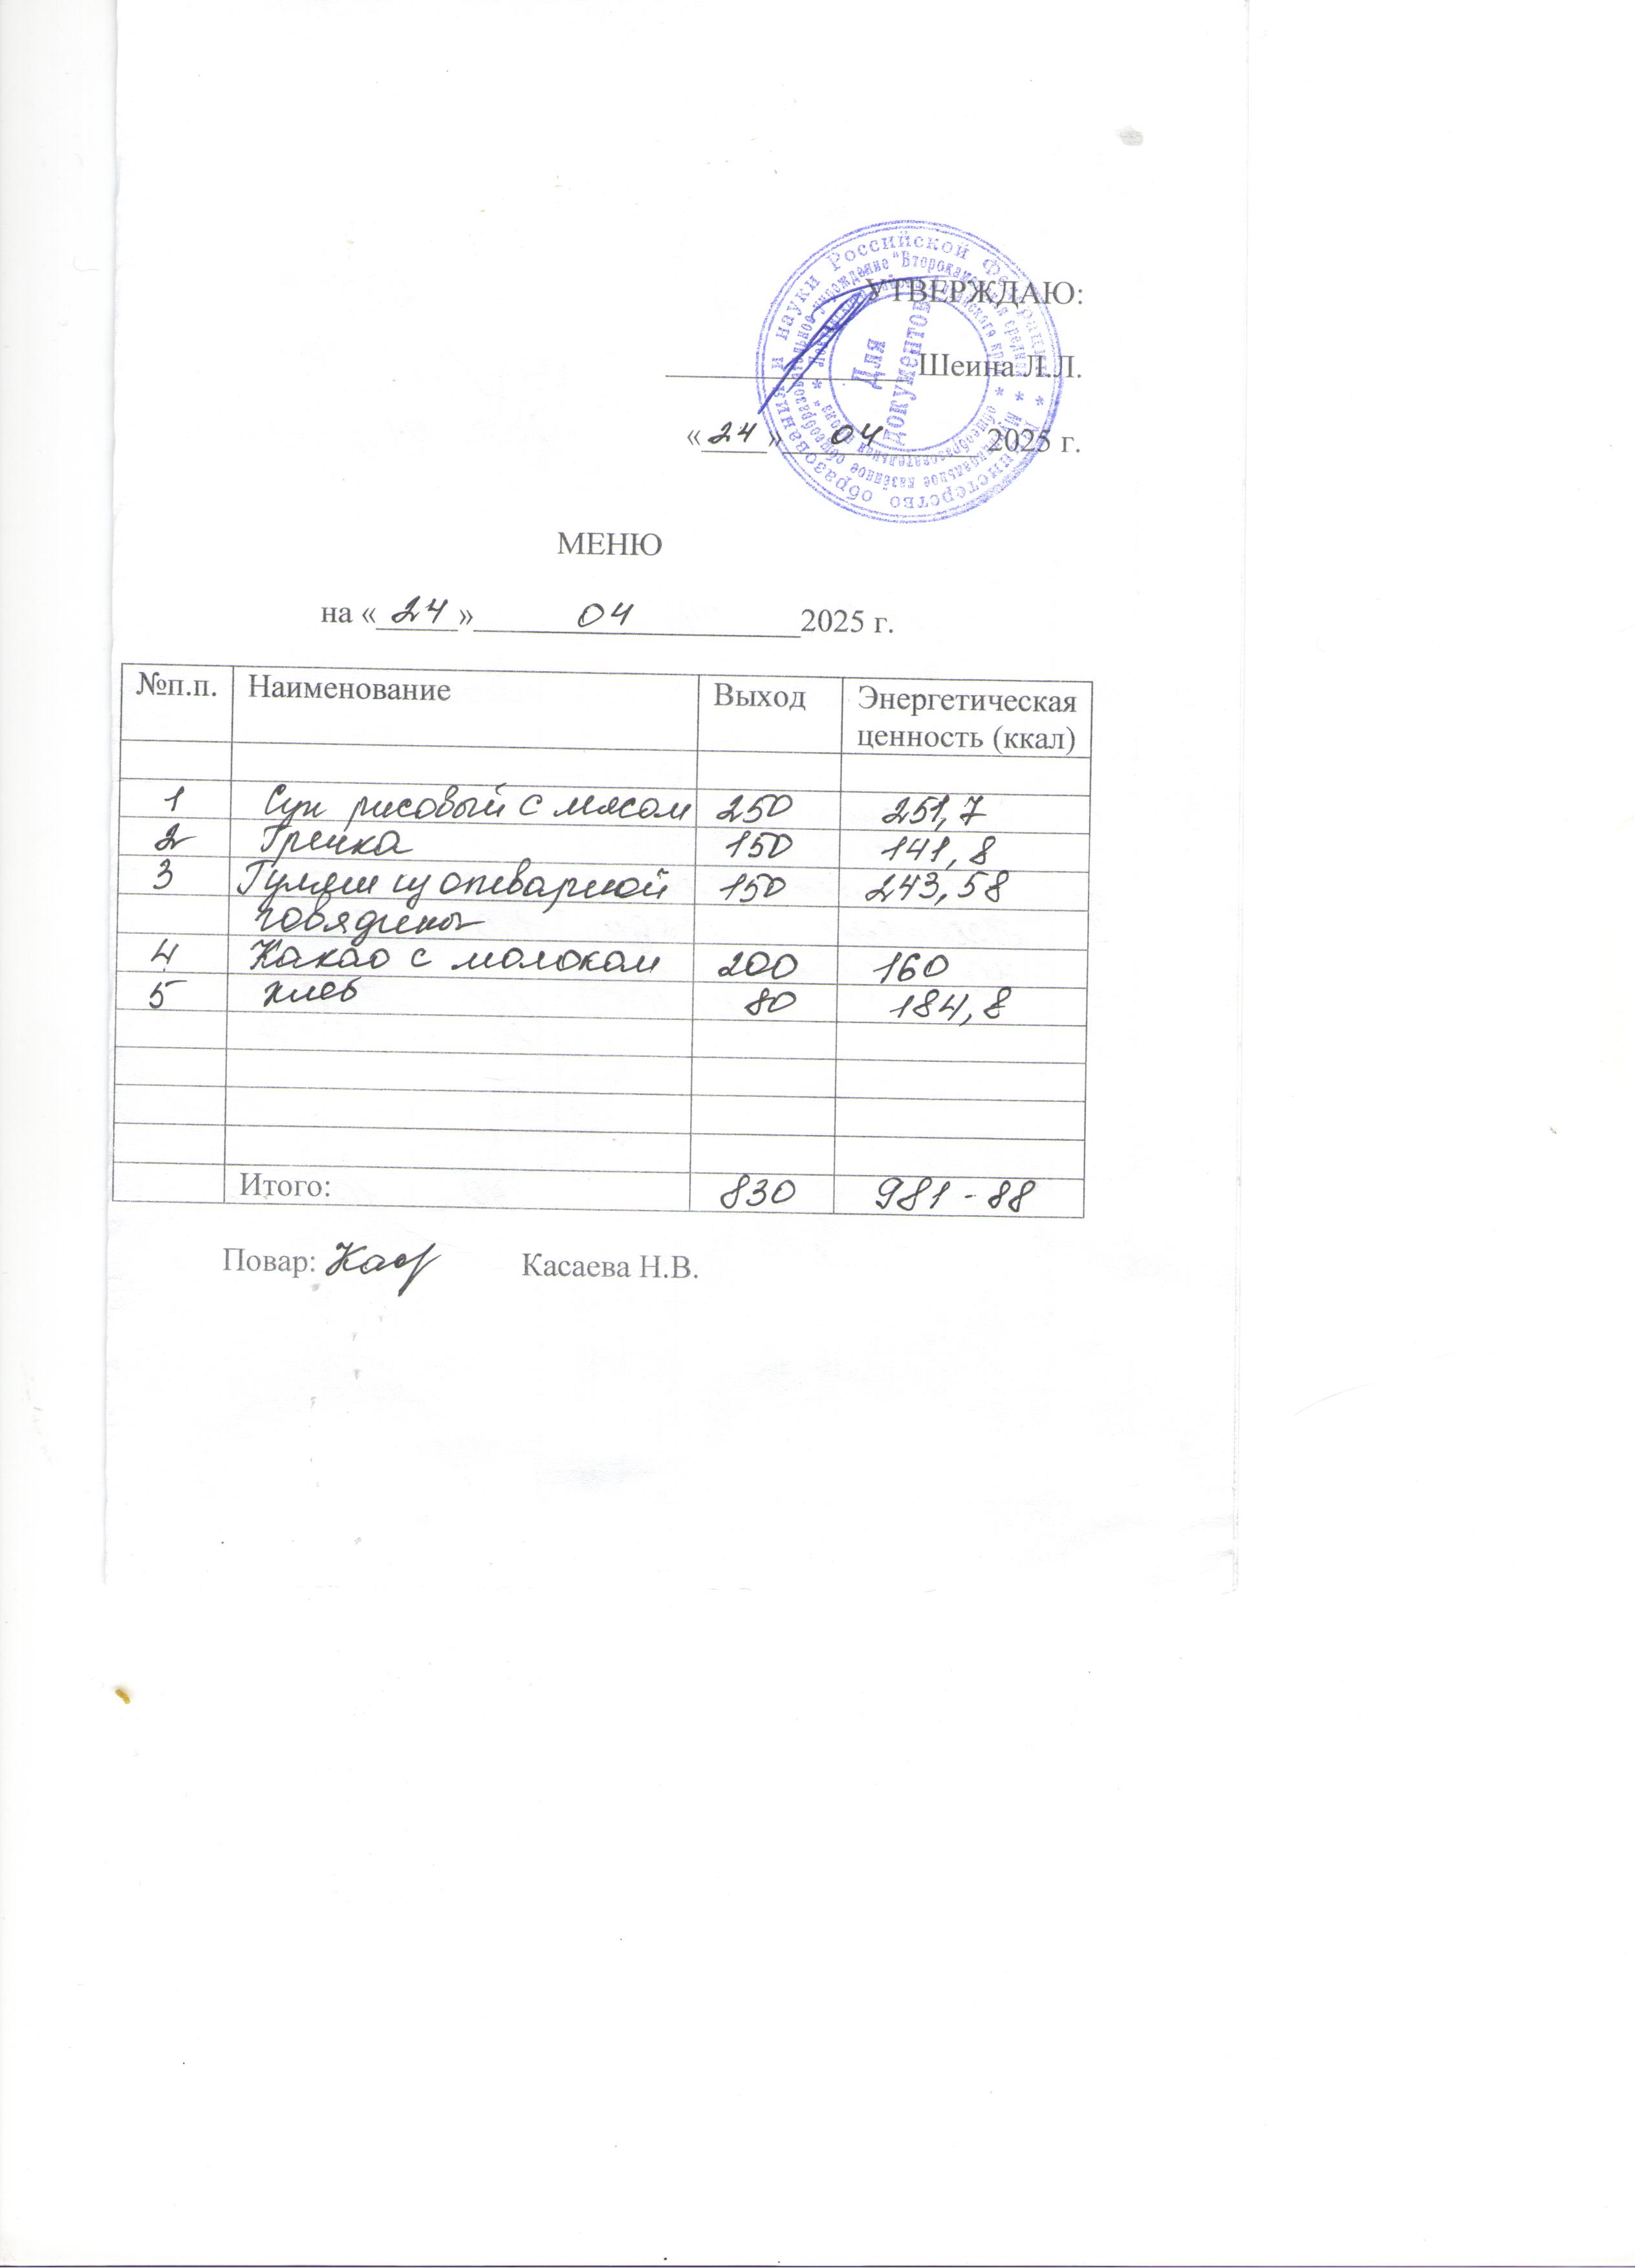 УТВЕРЖДАЮ:
Шеина Л.Л.
«24» 04 2025 г.
Министерство образования и науки Российской Федерации
Для документов
МЕНЮ
на «24» 04 2025 г.
№п.п. Наименование Выход Энергетическая
ценность (ккал)
1 Суп рисовый с мясом 250 251,7
2 Гречка 150 141,8
3 Гуляш из отварной 150 243,58
говядины
4 Какао с молоком 200 160
5 хлеб 80 184,8
Итого: 830 981-88
Повар: Касаева Н.В.